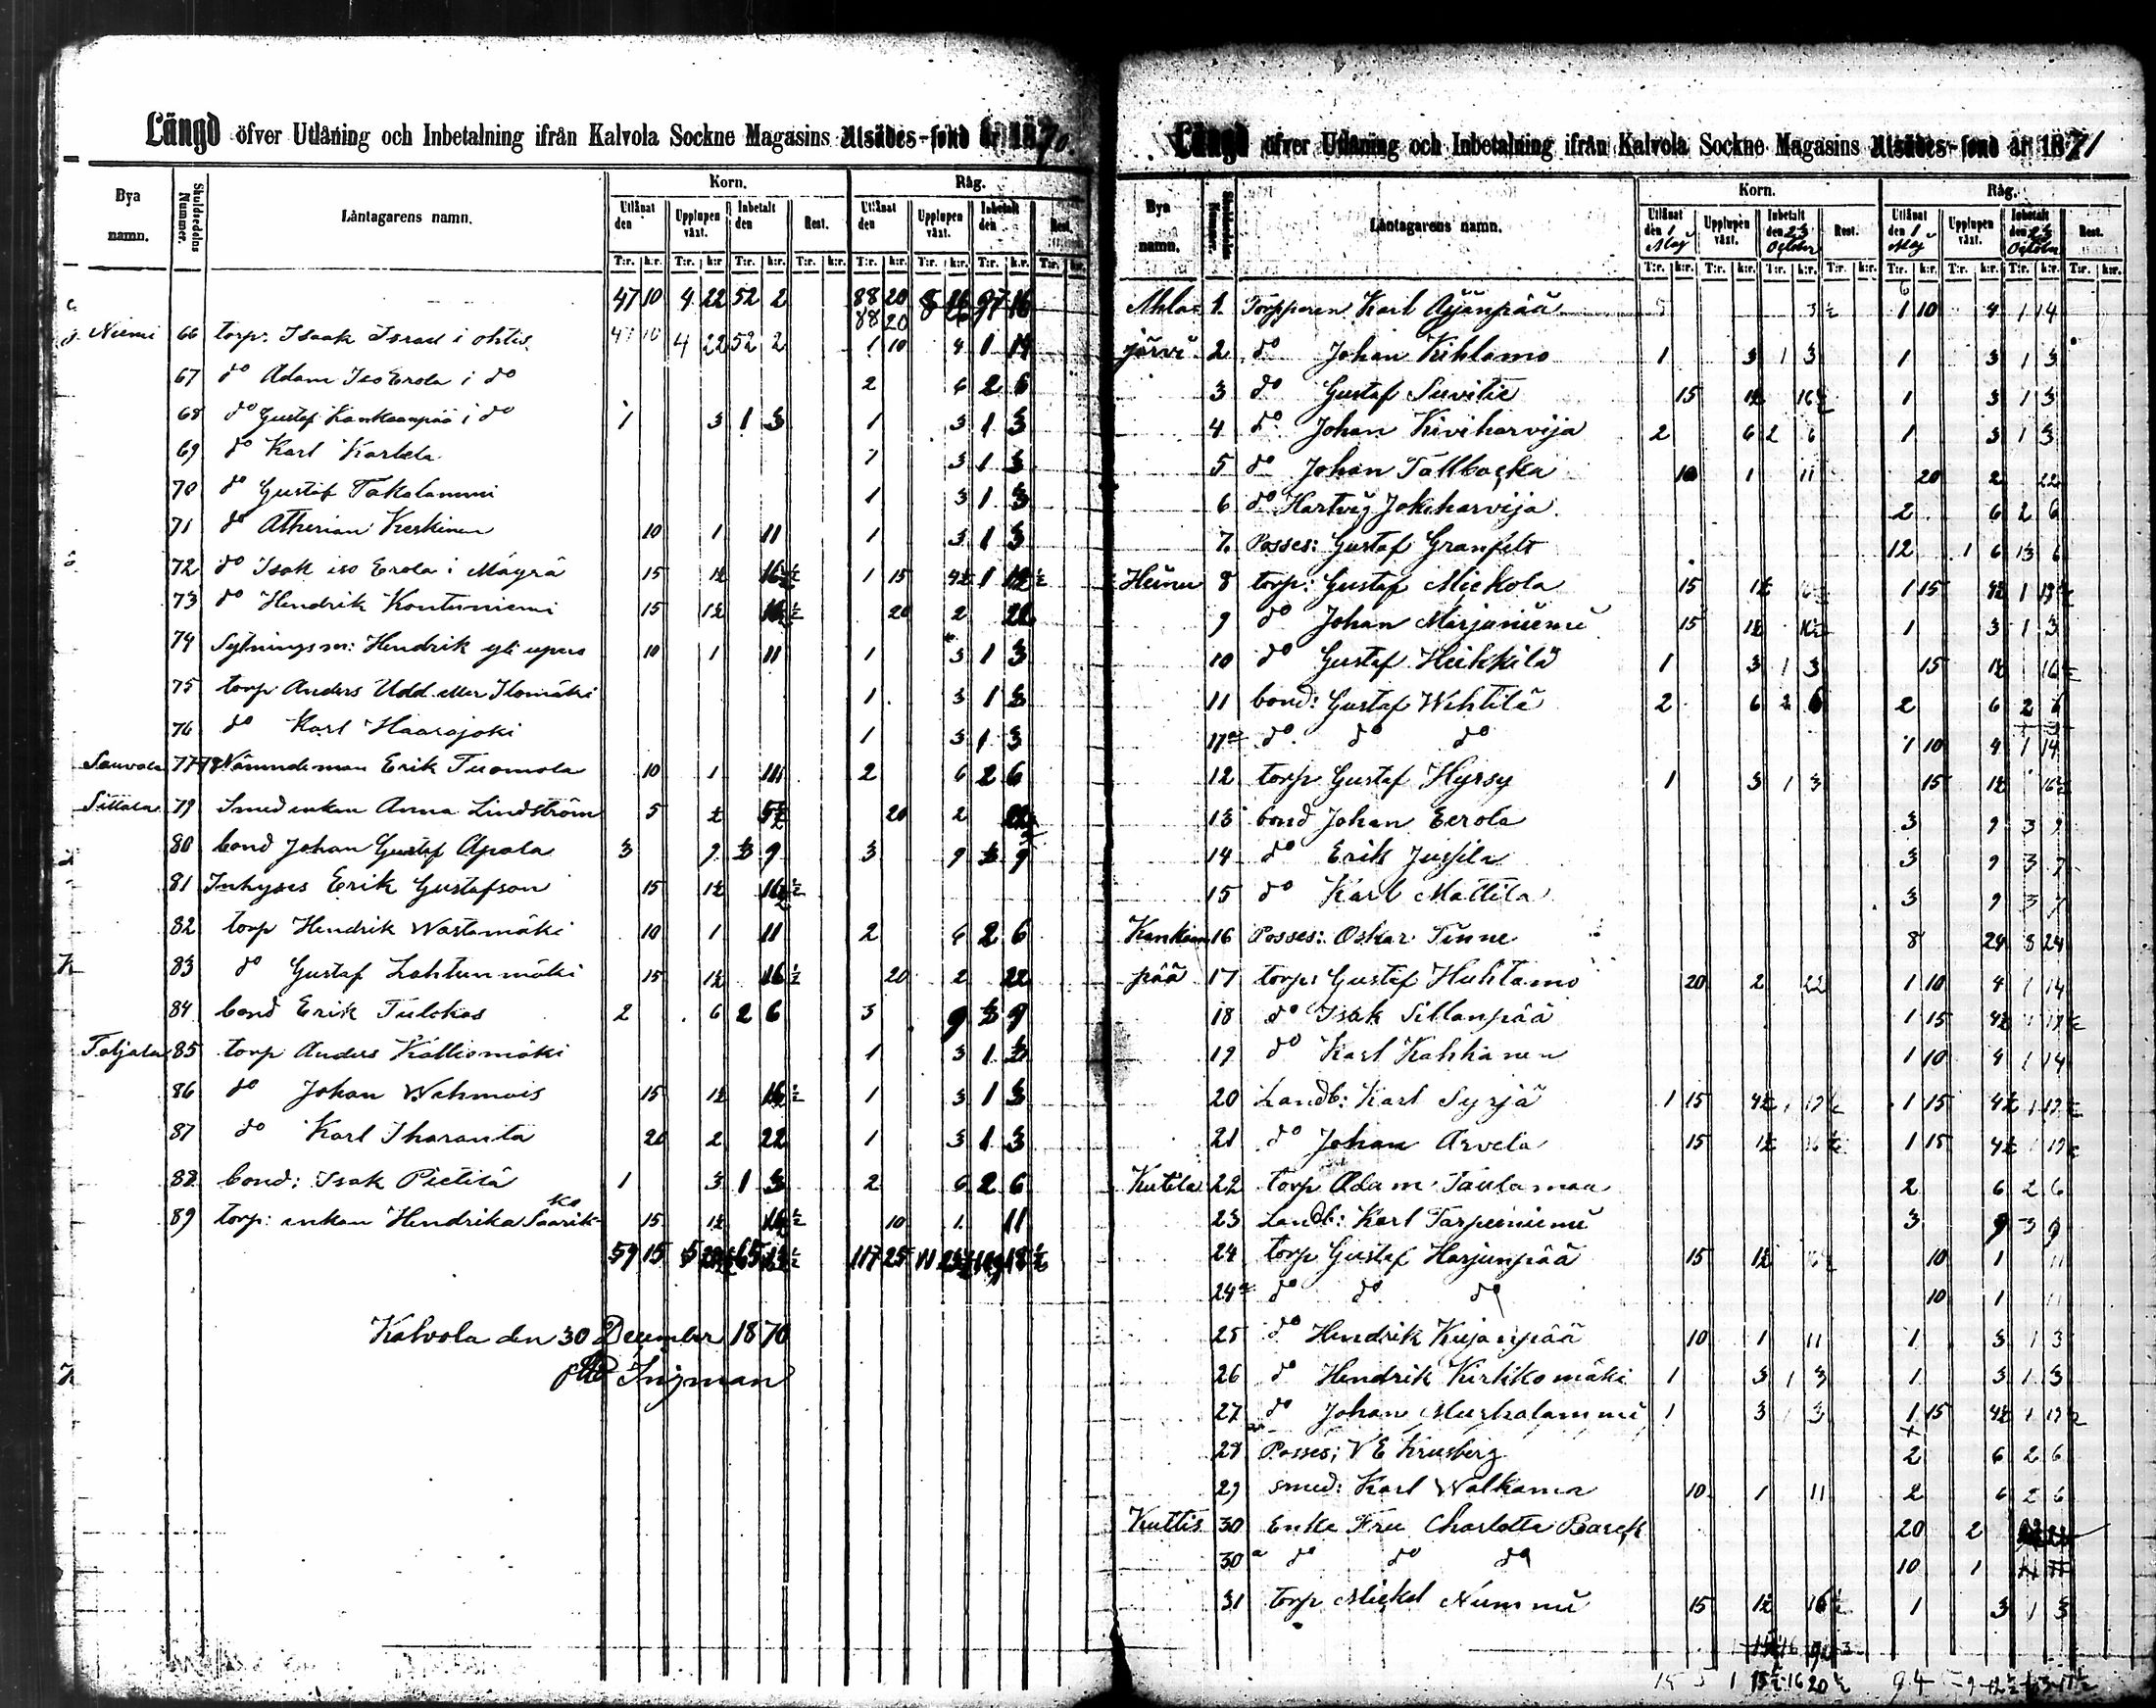 Längd öfver Utlåning och Inbetalning ifrån Kalvola Sockne Magasins Utsädes-fond år 1870.
Korn. Råg.
Bya namn. Skuldsedelns Nummer. Låntagarens namn. Utlånat den Upplupen växt. Inbetalt den Rest. Utlånat den Upplupen växt. Inbetalt den Rest.
T:r. k:r. T:r. k:r T:r. k:r. T:r. k:r. T:r. k:r. T:r. k:r. T:r. k:r. T:r. k:r.
47 10 4 22 52 2 88 20 8 26 97 16
Niemi 66 torp: Isaak Israel i ohtis 47 10 4 22 52 2 1 10 4 1 14
67 do Adam Iso Erola i do 2 6 2 6
68 do Gustaf Kankaanpää i do 1 3 1 3 1 3 1 3
69 do Karl Karlela 1 3 1 3
70 do Gustaf Takalammi 1 3 1 3
71 do Atherian Keskinen 10 1 11 1 3 1 3
72 do Isak iso Erola i Mäyrä 15 1½ 16½ 1 15 4½ 1 19½
73 do Hendrik Kontuniemi 15 1½ 16½ 20 2 22
74 Sytningsm: Hendrik yli 10 1 11 1 3 1 3
75 torp Anders Udd eller Ilomäki 1 3 1 3
76 do Karl Haarajoki 1 3 1 3
Sauvala 77 78 Nämndeman Erik Tuomola 10 1 11 2 6 2 6
Sittala 79 Smedenkan Anna Lindström 5 ½ 5½ 20 2 22
80 bond Johan Gustaf Apola 3 9 3 9 3 9 3 9
81 Inhyses Erik Gustafson 15 1½ 16½
82 torp Hendrik Wastamäki 10 1 11 2 6 2 6
83 do Gustaf Lahtenmäki 15 1½ 16½ 20 2 22
84 bond Erik Tulokas 2 6 2 6 3 9 3 9
Taljala 85 torp Anders Kalliomäki 1 3 1 3
86 do Johan Wahmois 15 1½ 16½ 1 3 1 3
87 do Karl Iharanta 20 2 22 1 3 1 3
88 bond: Isak Pietilä 1 3 1 3 2 6 2 6
89 torp: enkan Hendrika Saarikko 15 1½ 16½ 10 1 11
59 15 5 65 117 25 11
Kalvola den 30 December 1870
Ingman
Längd öfver Utlåning och Inbetalning ifrån Kalvola Sockne Magasins Utsädes-fond år 1871
Korn. Råg.
Bya namn. Skuldsedelns Nummer. Låntagarens namn. Utlånat den 1 Maj Upplupen växt. Inbetalt den 23 October Rest. Utlånat den 1 Maj Upplupen växt. Inbetalt den 23 October Rest.
T:r. k:r. T:r. k:r. T:r. k:r. T:r. k:r. T:r. k:r. T:r. k:r. T:r. k:r. T:r. k:r.
Ahla- 1. Torpparen Karl Äijänpää 1 10 4 1 14
järvi 2 do Johan Kihlamo 1 3 1 3 1 3 1 3
3 do Gustaf Suvitie 15 1½ 16½ 1 3 1 3
4 do Johan Kiviharvija 2 6 2 6 1 3 1 3
5 do Johan Tallbacka 10 1 11 20 2 22
6 do Hartvig Jokiharvija 2 6 2 6
7. Posses: Gustaf Granfelt 12 1 6 13 6
Heinu 8 torp: Gustaf Mickola 15 1½ 16½ 1 15 4½ 1 19½
9 do Johan Marjaniemi 15 1½ 16½ 1 3 1 3
10 do Gustaf Heikkilä 1 3 1 3 15 1½ 16½
11 bond: Gustaf Wehtilä 2 6 2 6 2 6 2 6
11a do do do 1 10 4 1 14
12 torp Gustaf Hyrsy 1 3 1 3 15 1½ 16½
13 bond Johan Eerola 3 9 3 9
14 do Erik Jussila 3 9 3 9
15 do Karl Mattila 3 9 3 9
Kankaan 16 Posses: Oskar Tinne 8 24 8 24
pää 17 torp: Gustaf Huhtamo 20 2 22 1 10 4 1 14
18 do Isak Sillanpää 1 15 4½ 1 19½
19 do Karl Kahkanen 1 10 4 1 14
20 Landb: Karl Syrjä 1 15 4½ 1 19½ 1 15 4½ 1 19½
21 do Johan Arvela 15 1½ 16½ 1 15 4½ 1 19½
Kutila 22 torp Adam Taulamaa 2 6 2 6
23 Landb: Karl Tarpeiniemi 3 9 3 9
24 torp Gustaf Harjunpää 15 1½ 16½ 10 1 11
24a do do do 10 1 11
25 do Hendrik Kujanpää 10 1 11 1 3 1 3
26 do Hendrik Kirkkomäki 1 3 1 3 1 3 1 3
27 do Johan Mustalammi 1 3 1 3 1 15 4½ 1 19½
28 Posses: V E Krusberg 2 6 2 6
29 smed: Karl Walkama 10 1 11 2 6 2 6
Kuttis 30 Enke Fru Charlotta Barck 20 2 22
30a do do do 10 1 11
31 torp Mickel Nummi 15 1½ 16½ 1 3 1 3